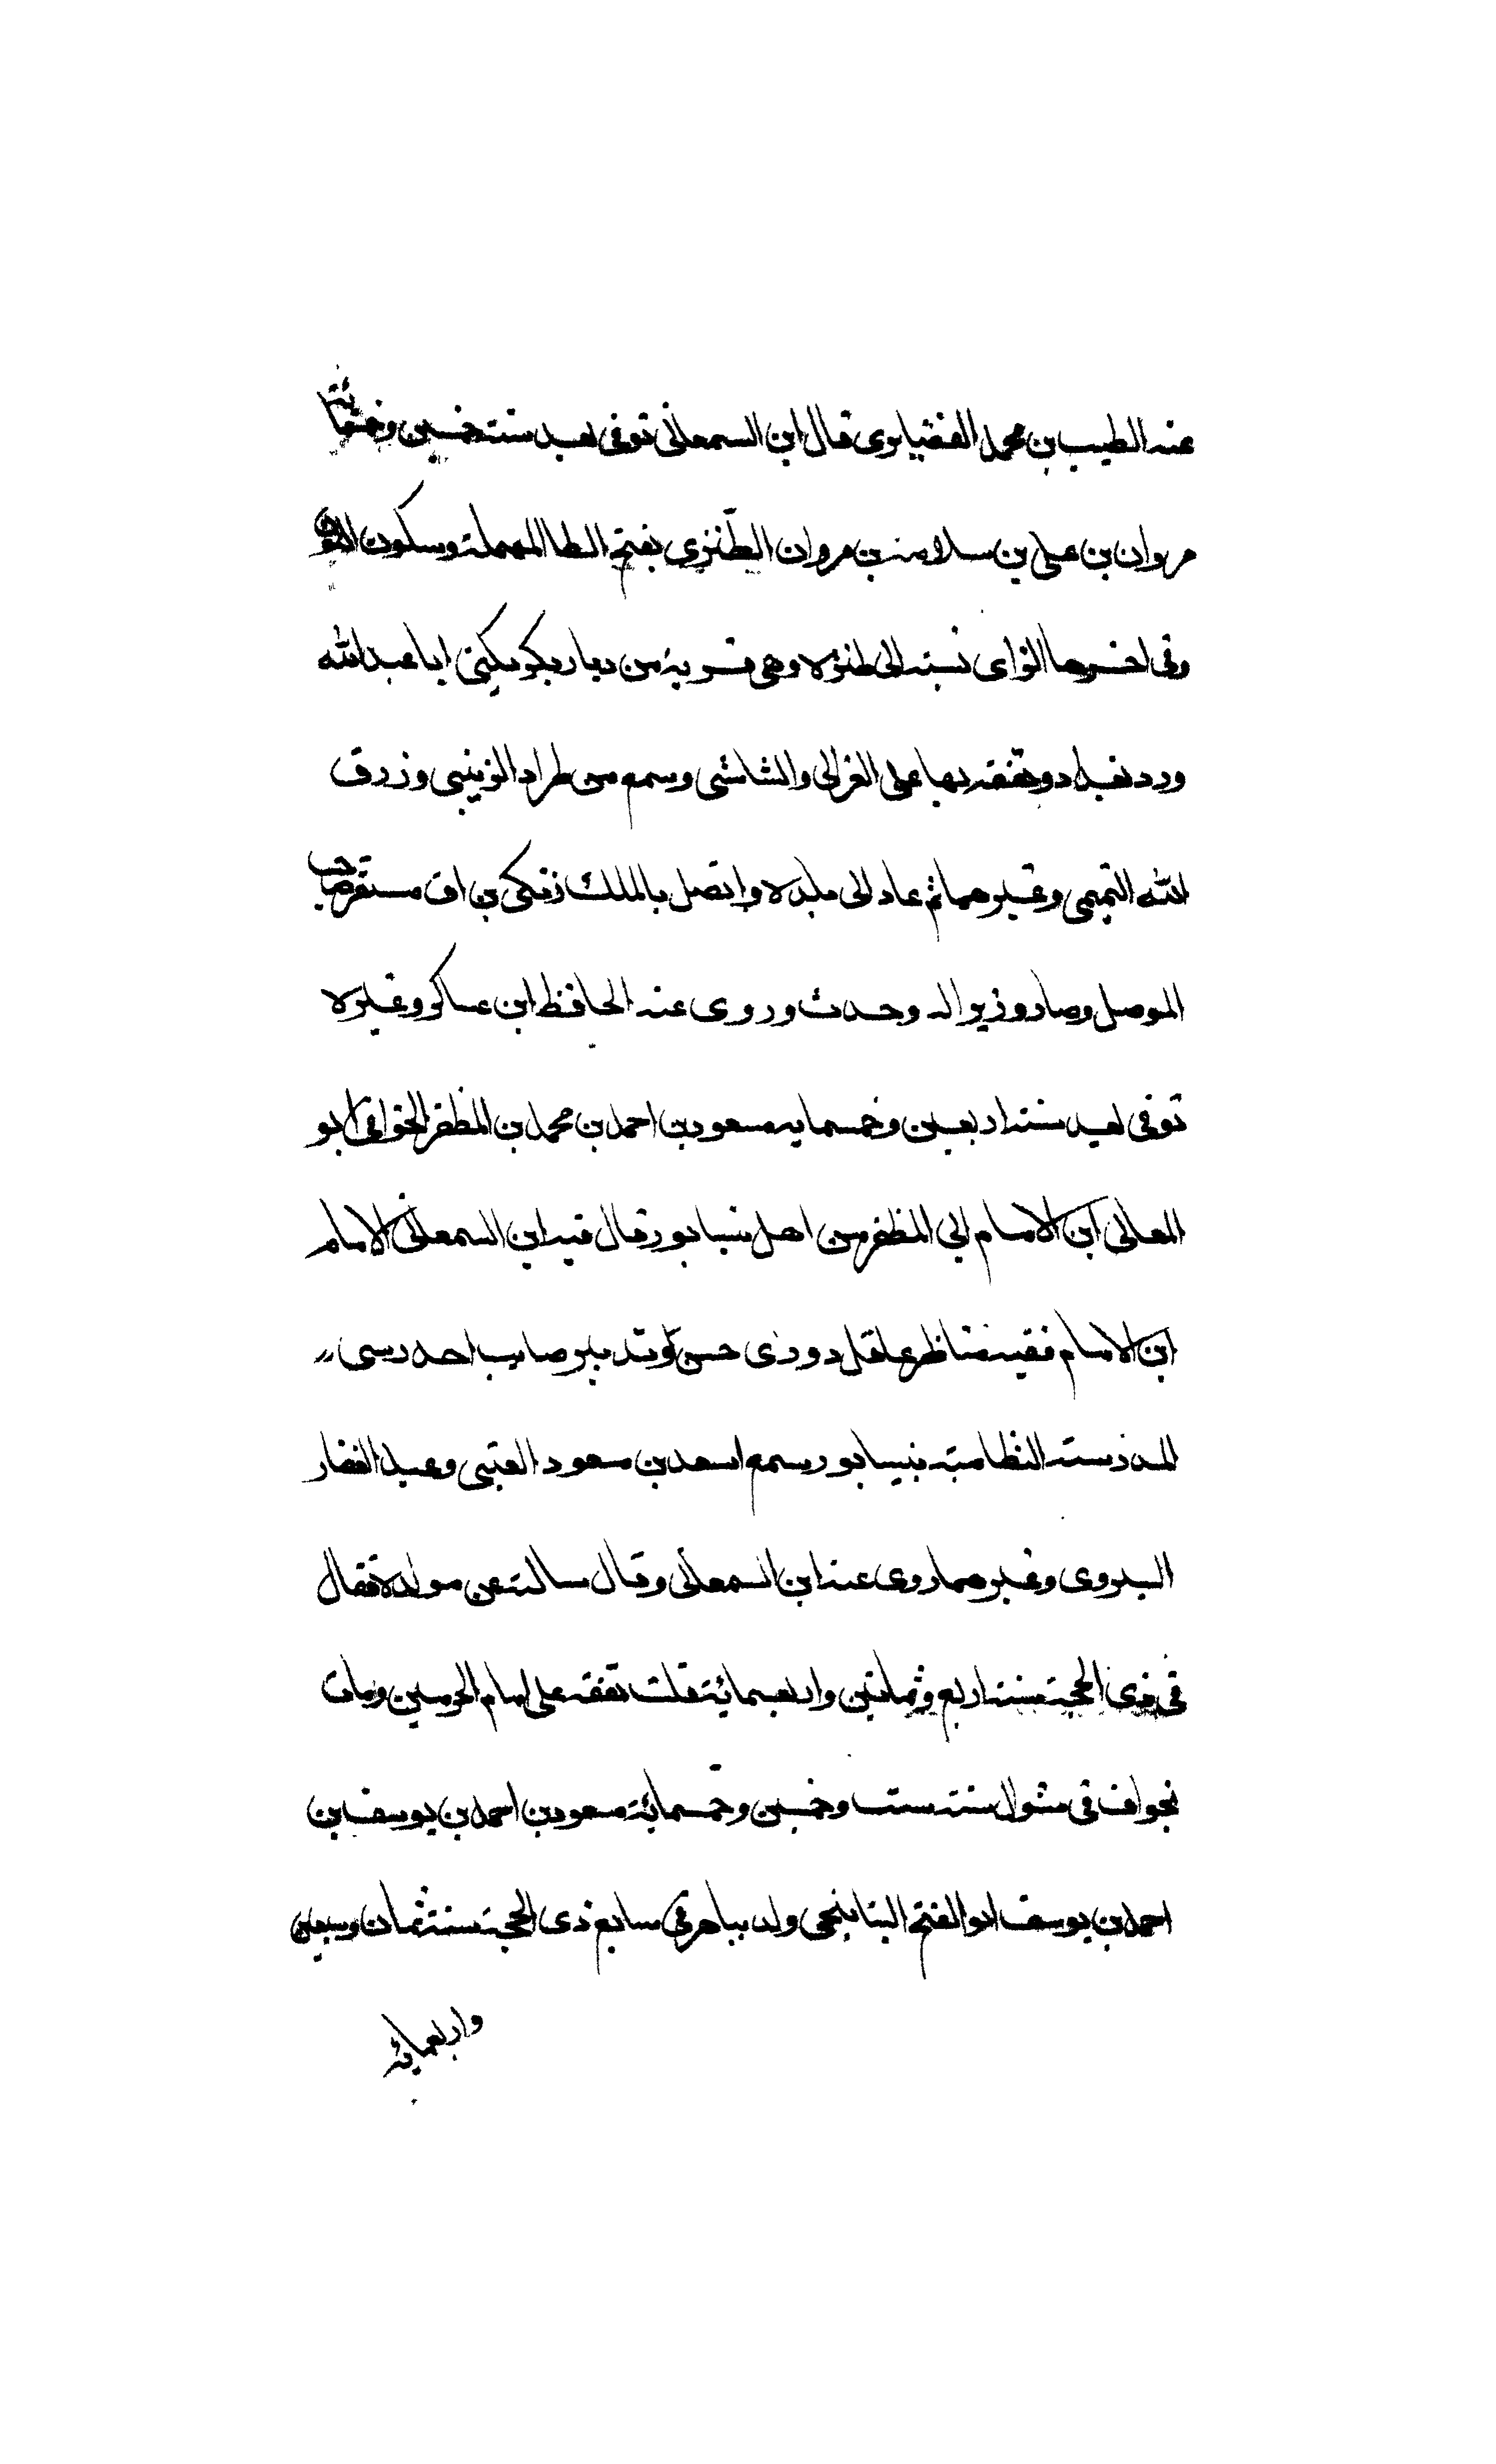 عنه الطيب بن محمد الغضايرى قال ابن السمعانى توفى بعد سنة خمسين وخمسمائة
مروان بن على بن سلامة بن مروان الطنزى بفتح الطا المهملة وسكون النون
وفى اخرها الزاى نسبة الى طنزه وهى قرية من ديار بكر يكنى ابا عبد الله
ورد بغداد وتفقه بها على الغزالى والشاشى وسمع من طراد الزينبى ورزق
الله التميمى وغيرهما ثم عاد الى بلده واتصل بالملك زنكى بن اق سنقر صاحب
الموصل وصار وزيرا له وحدث وروى عنه الحافظ ابن عساكر وغيره
توفى بعد سنة اربعين وخمسمايه مسعود بن احمد بن محمد بن المظفر الخوافى ابو
المعالى ابن الامام ابي المظفر من اهل نيسابور قال فيه ابن السمعانى الامام
ابن الامام فقيه مناظر عاقل دو رى حسن وتدبير صايب احد درسى
المدرسة النظامية بنيسابور سمع اسعد بن مسعود العتبى وعبد الغفار
الشيروى وغيرهما روى عنه ابن السمعانى وقال سالته عن مولده فقال
فى ذى الحجة سنة اربع وثمانين واربعمائة قلت تفقه على امام الحرمين ومات
بخواف فى شوال سنة ست وخمسين وخمسمائة مسعود بن احمد بن يوسف بن
احمد بن يوسف ابو الفتح البامنجى ولد ببامر فى سابع ذى الحجة سنة ثمان وسبعين
واربعمائه